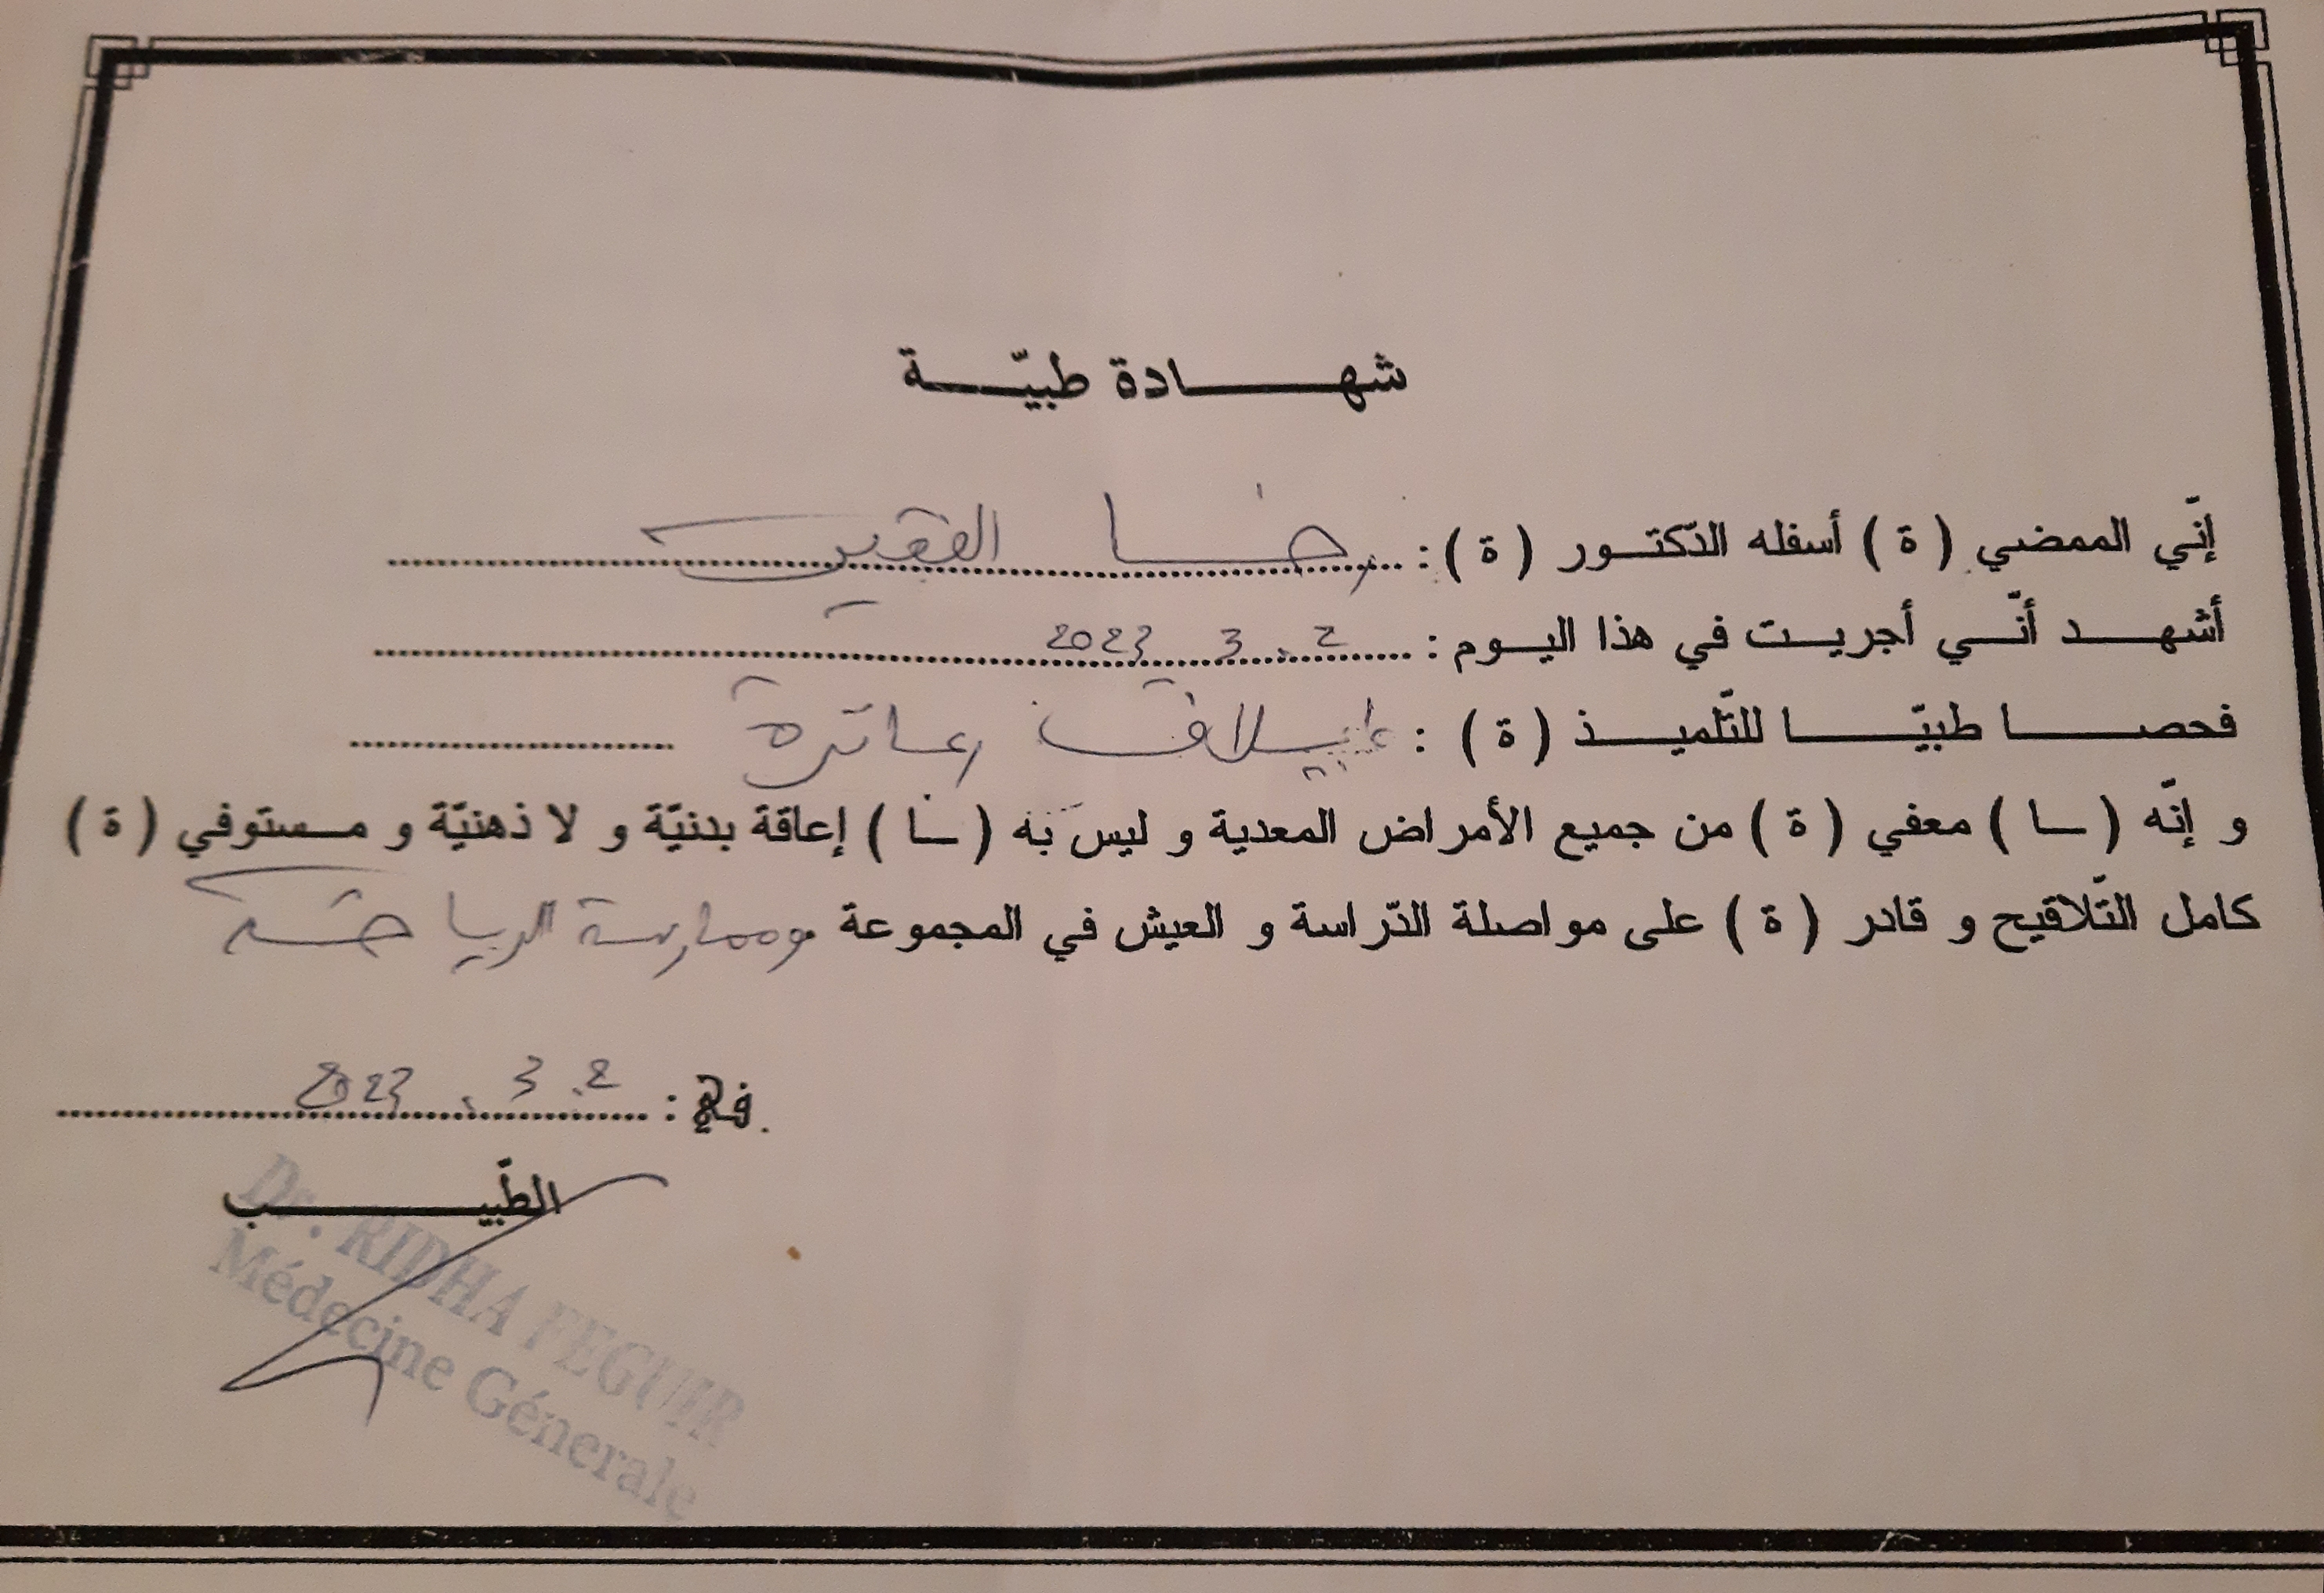 شهادة طبيّة
إنّي الممضي ( ة ) أسفله الدّكتور ( ة ) : رضا الفقير
أشهد أنّي أجريت في هذا اليوم : 2 . 3 2023
فحصا طبيّا للتّلميذ ( ة ) :
و إنّه ( ـا ) معفي ( ة ) من جميع الأمراض المعدية و ليس به ( ـا ) إعاقة بدنيّة و لا ذهنيّة و مستوفي ( ة )
كامل التّلاقيح و قادر ( ة ) على مواصلة الدّراسة و العيش في المجموعة وممارسة الرياضة
في : 2 . 3 . 2023
الطّبيب
Dr. RIDHA FEGUIR
Médecine Génerale